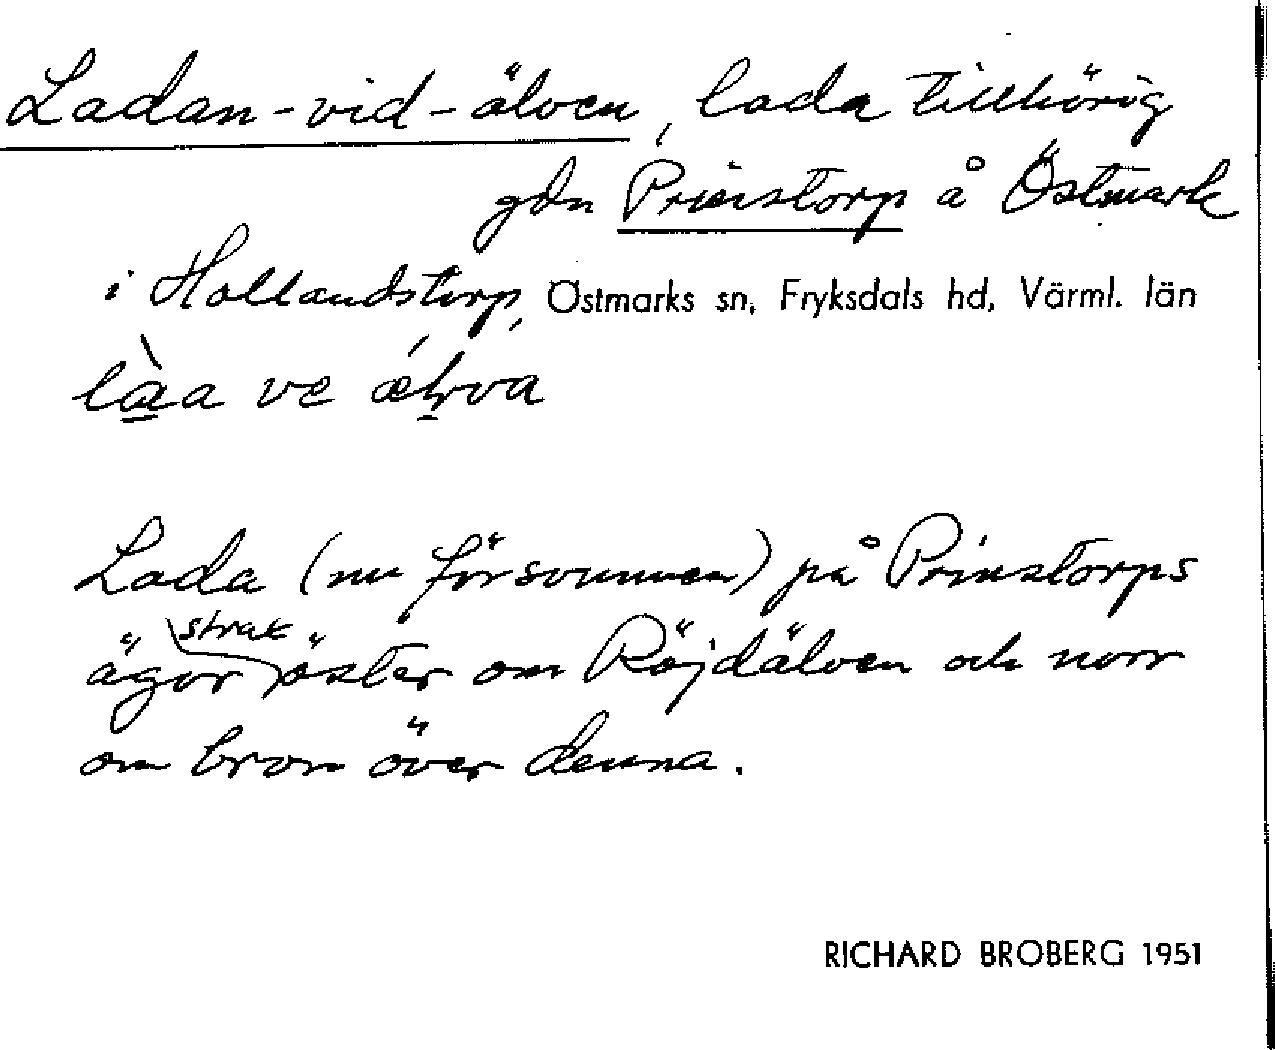 Ladan-vid-älven, lada tillhörig
gdn Prinstorp å Östmark
i Hollandstorp, Östmarks sn, Fryksdals hd, Värml. län
làa ve
Lada (nu försvunnen) på Prinstorps
ägor strax öster om Röjdälven och norr
om bron över denna.
RICHARD BROBERG 1951